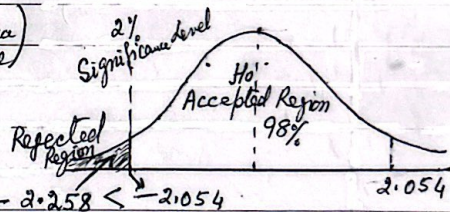 2%
Significance Level
Ho
Accepted Region
98%
Rejected
Region
- 2.258 < -2.054
2.054